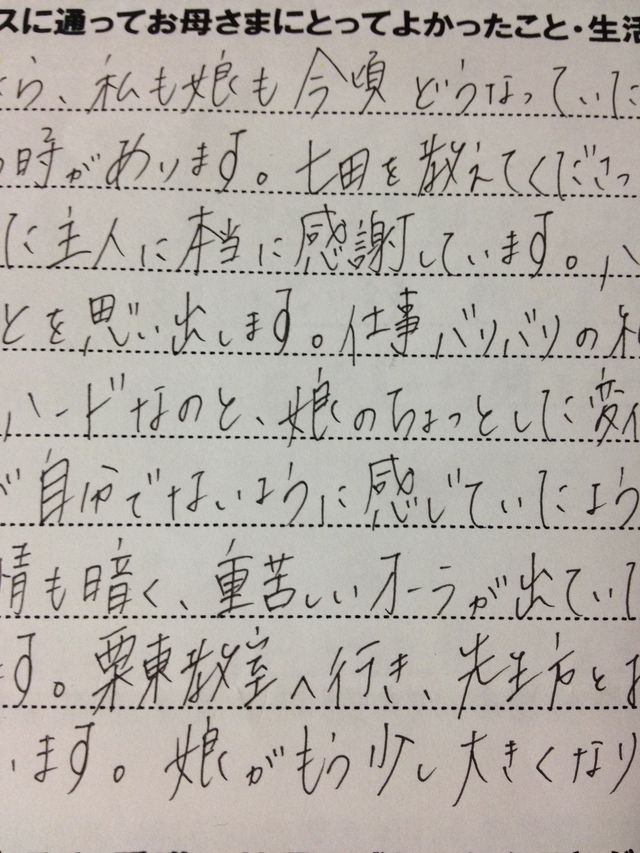 スに通ってお母さまにとってよかったこと・生活
ら、私も娘も今頃どうなっていた
時があります。七田を教えてくださっ
た主人に本当に感謝しています。ハ
とを思い出します。仕事バリバリの私
ハードなのと、娘のちょっとした変化
が自分でないように感じていたよう
情も暗く、重苦しいオーラが出ていた
ます。栗東教室へ行き、先生方とお
います。娘がもう少し大きくなり